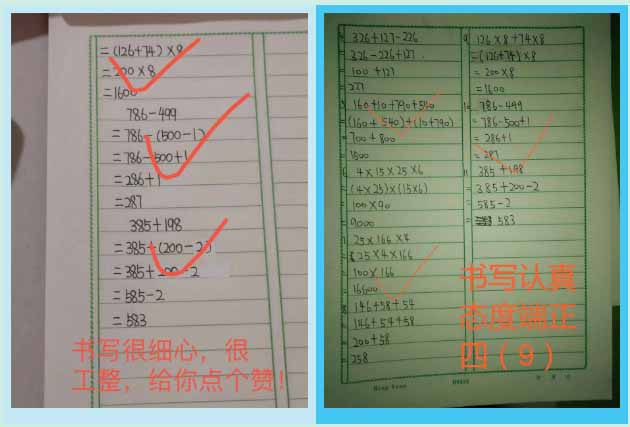 =(126+74)×8
=200×8
=1600
786-499
=786-(500-1)
=786-500+1
=286+1
=287
385+198
=385+(200-2)
=385+200-2
=585-2
=583
书写很细心，很
工整，给你点个赞！
326+127-226
326-226+127
=100+127
227
160+10+790+540
=(160+540)+(10+790)
=700+800
=1500
4×15×25×6
=(4×25)×(15×6)
=100×90
=9000
25×166×4
25×4×166
=100×166
=16600
146+58+54
=146+54+58
=200+58
=258
126×8+74×8
=(126+74)×8
=200×8
=1600
786-499
=786-500+1
=286+1
=287
385+198
=385+200-2
=585-2
=583
书写认真
态度端正
四（9）